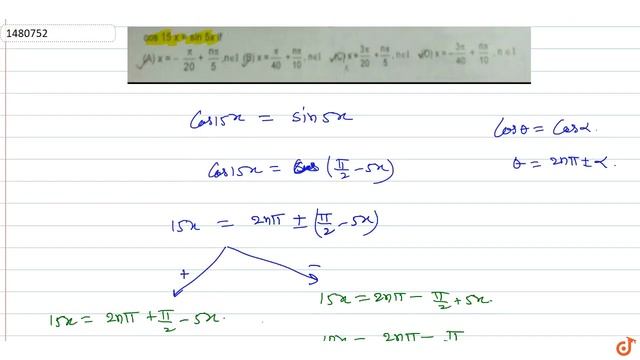 1480752
cos 15 x = sin 5x if
(A) x = - π/20 + nπ/5, n∈I (B) x = π/40 + nπ/10, n∈I (C) x = 3π/20 + nπ/5, n∈I (D) x = -3π/40 + nπ/10, n∈I
Cos15x = sin5x
Cosθ = Cosα.
Cos15x = Cos (π/2 - 5x)
θ = 2nπ ± α.
15x = 2nπ ± (π/2 - 5x)
+ -
15x = 2nπ - π/2 + 5x.
15x = 2nπ + π/2 - 5x.
15x = 2nπ - π